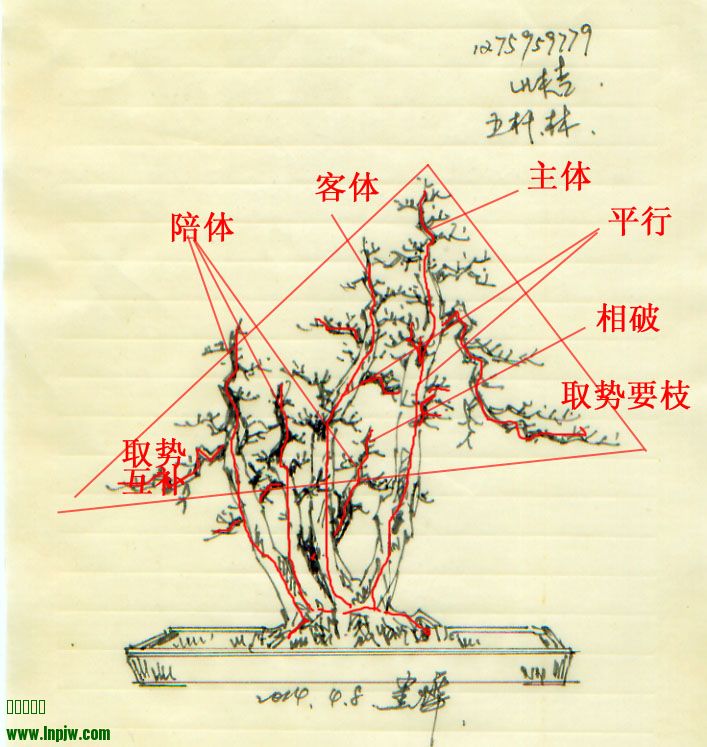 1275959779
山夫吉
五杆林.
主体
客体
平行
陪体
相破
取势要枝
取势
互补
2014. 4.8
www.lnpjw.com